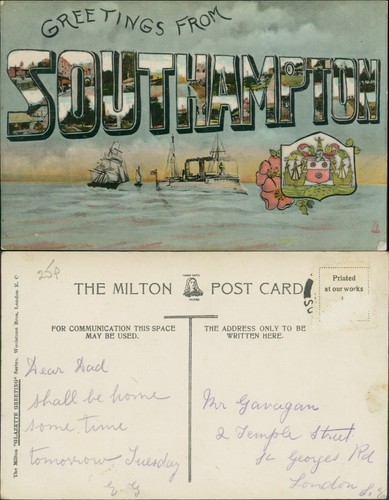 GREETINGS FROM
SOUTHAMPTON
25p
THE MILTON POST CARD
Printed
at our works
FOR COMMUNICATION THIS SPACE
MAY BE USED.
THE ADDRESS ONLY TO BE
WRITTEN HERE.
The Milton "GLAZETTE GREETING" Series. Woolstone Bros., London E. C.
Dear Dad
shall be home
some time
tomorrow Tuesday
Mr Gavagan
2 Temple Street
St Georges Rd
London S.E.